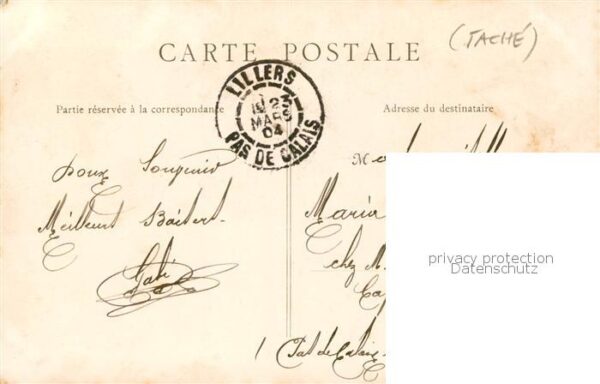 (TACHÉ)
CARTE POSTALE
LILLERS
23
MARS
04
PAS DE CALAIS
Partie réservée à la correspondance
Adresse du destinataire
doux Souvenir
Meilleurs Baisers
Gabi
M
Maria
chez M
Pas de Calais
privacy protection
Datenschutz